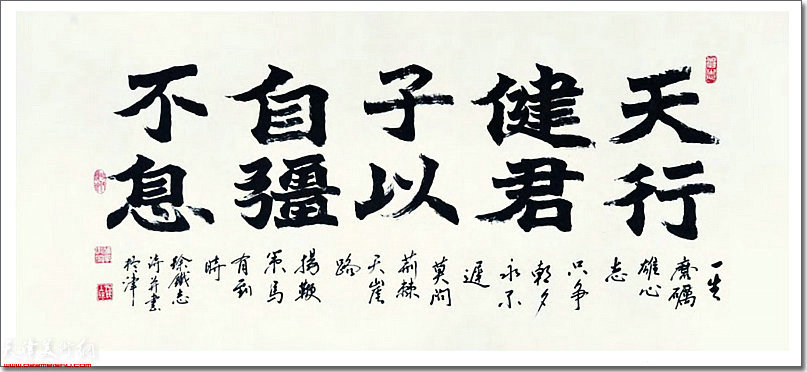 天行
健君
子以
自彊
不息
一生
磨礪
雄心
志
只争
朝夕
永不
遲
莫问
荊棘
天崖
路
揚鞭
策馬
有到
時
徐鐵志
诗并書
於津
天津美术网